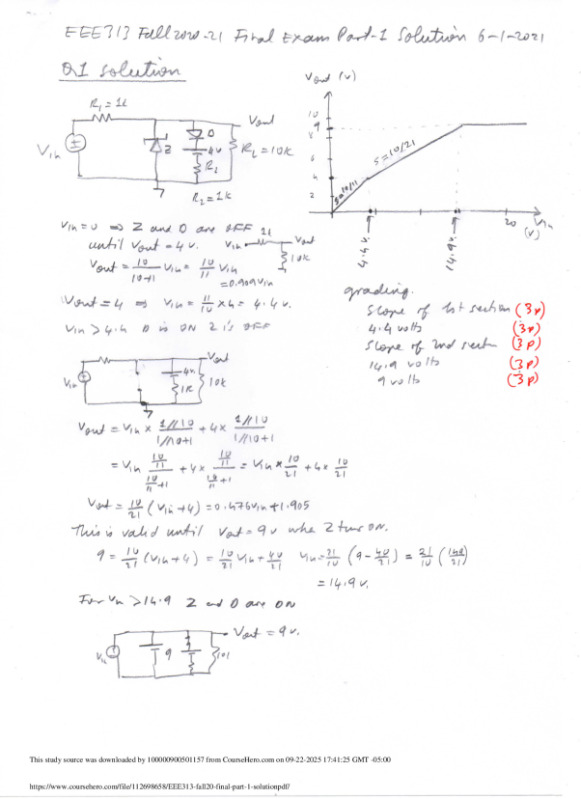 EEE313 Fall 2020-21 Final Exam Part-1 Solution 6-1-2021
Q1 solution
Vout (v)
R1 = 1k
Vout
Vin
Z
D
4v
R2
RL = 10k
R2 = 1k
10
9
8
6
4
2
S=10/21
S=10/11
4.4v.
14.9v.
20
Vin
(v)
Vin = 0 ⇒ Z and D are OFF
until Vout = 4 v.
Vin
1k
Vout
10k
Vout = 10/(10+1) Vin = 10/11 Vin
= 0.909 Vin
Vout = 4 ⇒ Vin = 11/10 x 4 = 4.4 v.
Vin > 4.4 D is ON Z is OFF
grading.
Slope of 1st section (3p)
4.4 volts (3p)
Slope of 2nd secti (3p)
14.9 volts (3p)
9 volts (3p)
Vin
Vout
4v
1k
10k
Vout = Vin x 1//10 / 1//10+1 + 4x 1//10 / 1//10+1
= Vin (10/11)/(10/11+1) + 4x (10/11)/(10/11+1) = Vin x 10/21 + 4x 10/21
Vout = 10/21 (Vin+4) = 0.476Vin + 1.905
This is valid until Vout = 9v whe Z turs ON.
9 = 10/21 (Vin+4) = 10/21 Vin + 40/21 Vin = 21/10 (9 - 40/21) = 21/10 (149/21)
= 14.9 v.
For Vin > 14.9 Z and D are ON
Vin
9
Vout = 9v.
This study source was downloaded by 100000900501157 from CourseHero.com on 09-22-2025 17:41:25 GMT -05:00
https://www.coursehero.com/file/112698658/EEE313-fall20-final-part-1-solutionpdf/